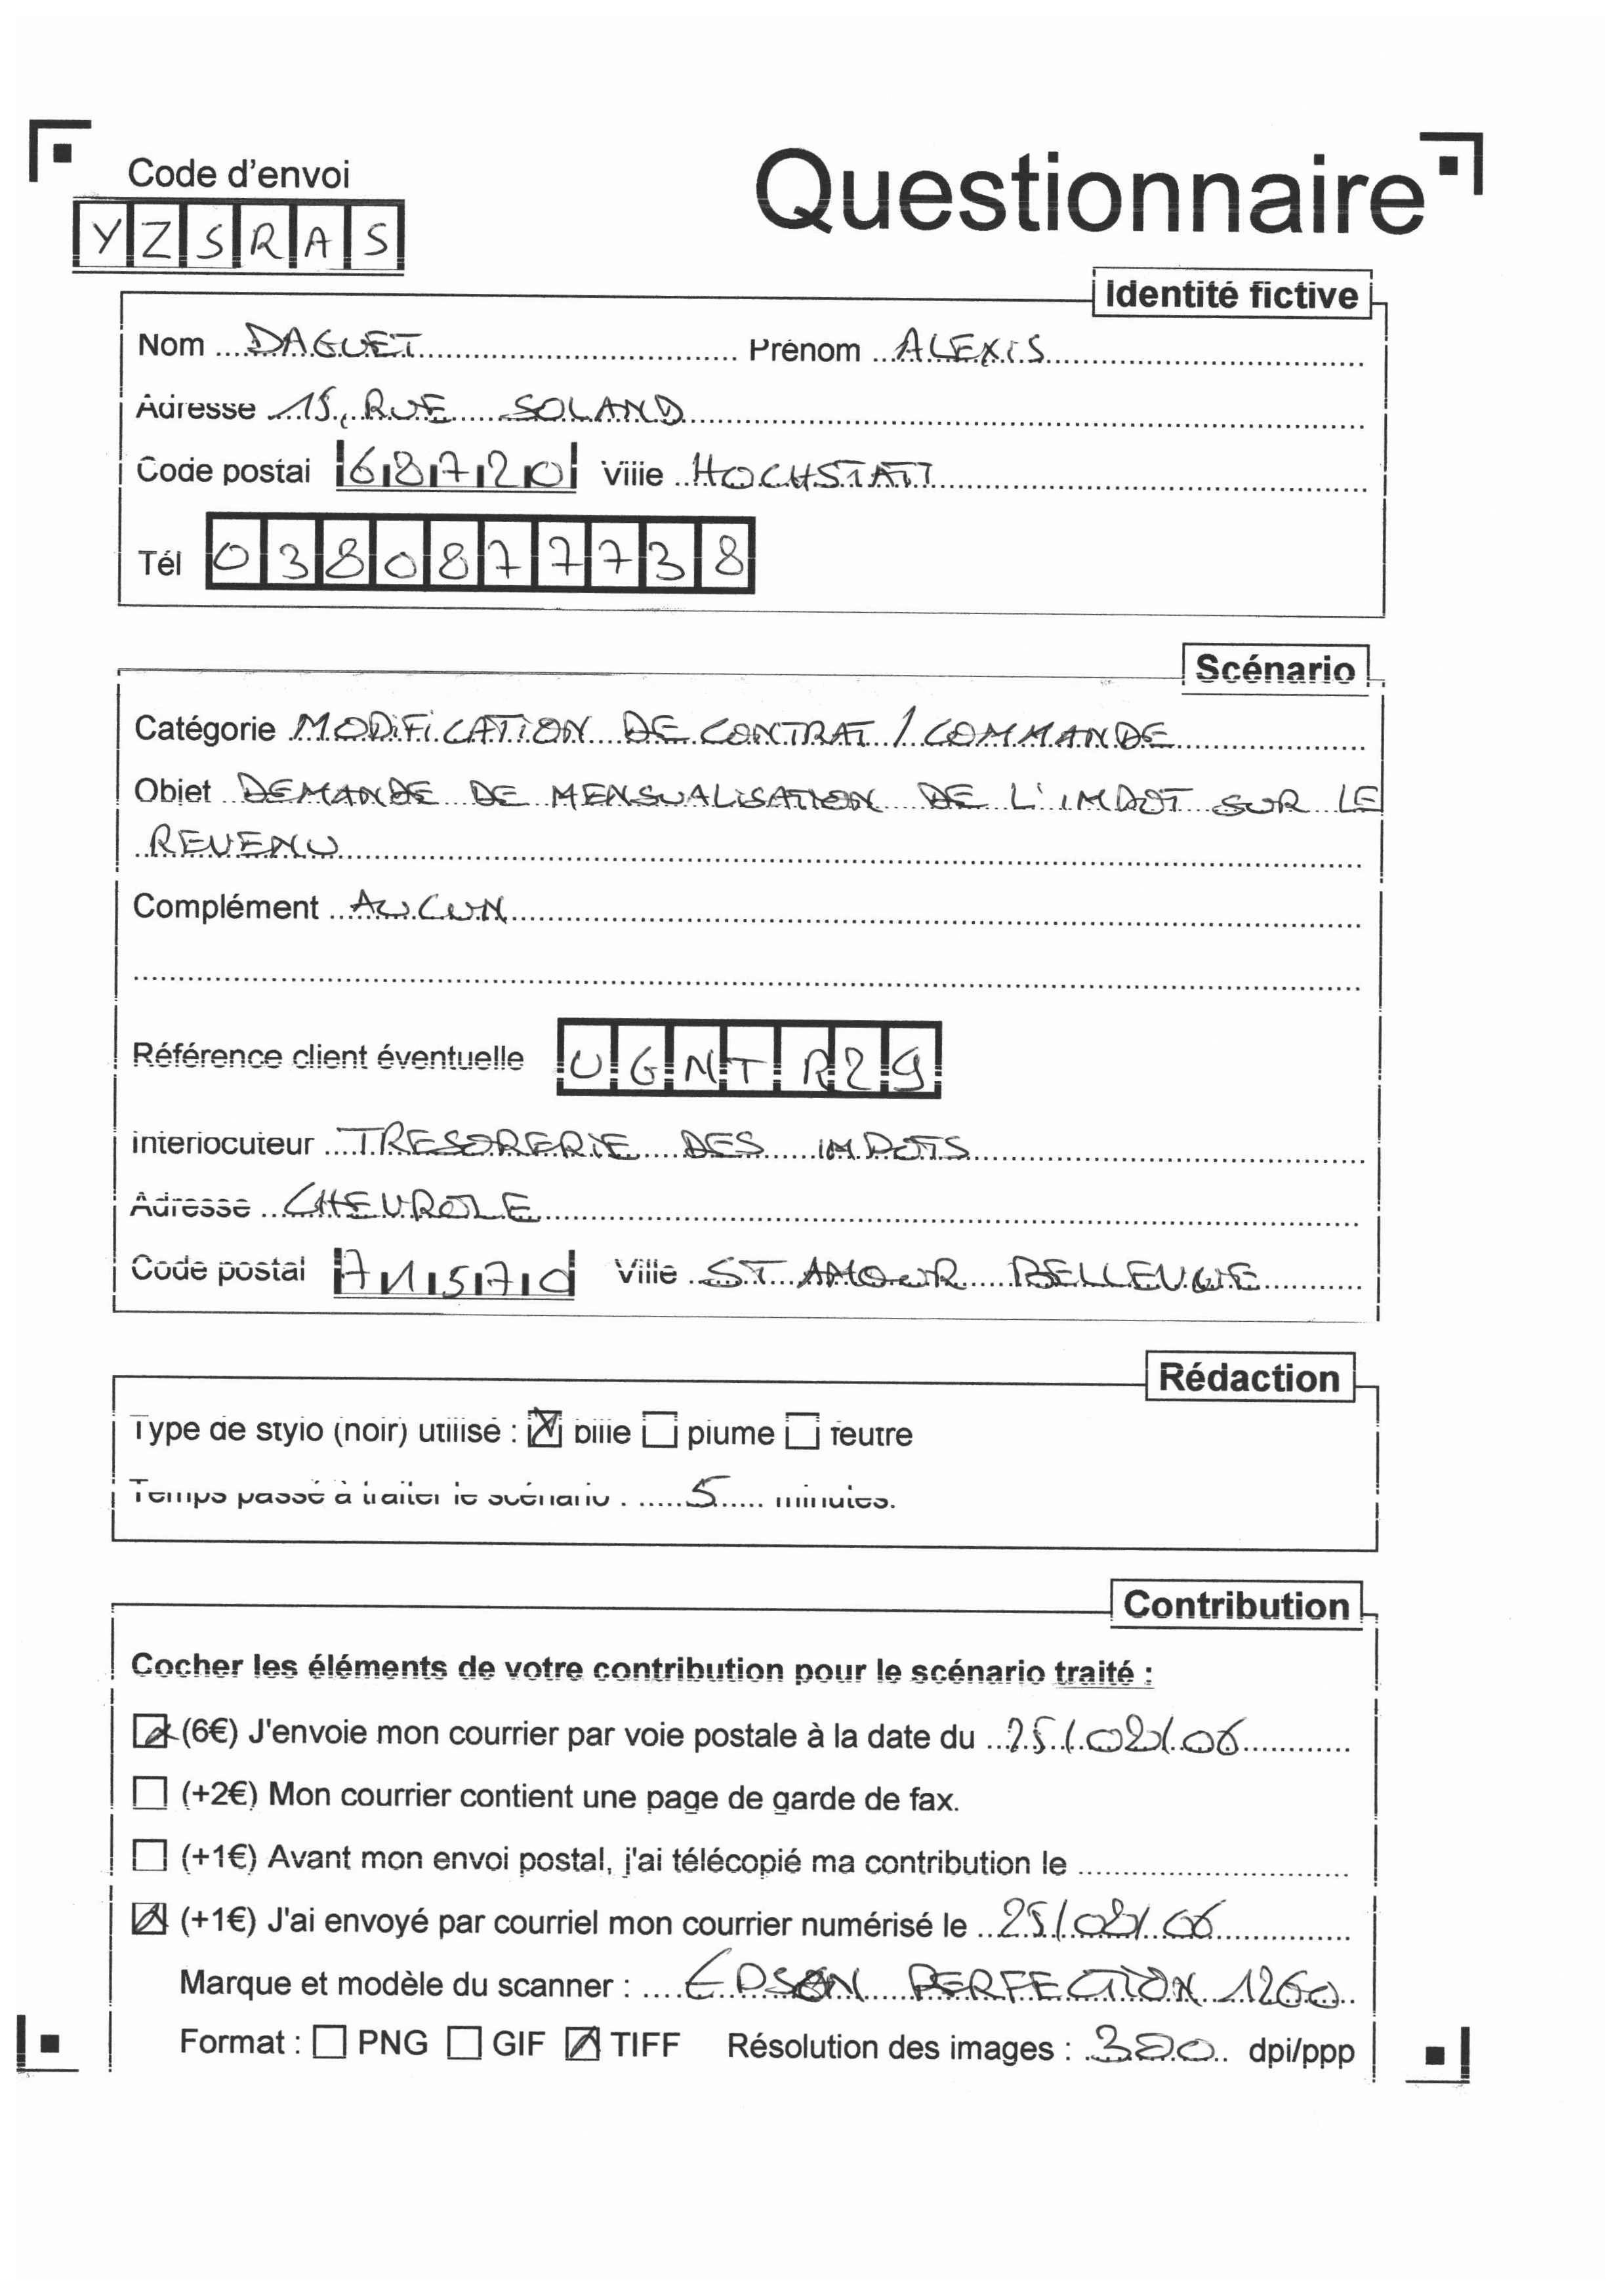 Code d'envoi
Questionnaire
YZSRAS
Identité fictive
Nom DAGUET Prénom ALEXIS
Adresse 15, RUE SOLAND
Code postal 68720 Ville HOCHSTATT
Tél 0380877738
Scénario
Catégorie MODIFICATION DE CONTRAT / COMMANDE
Objet DEMANDE DE MENSUALISATION DE L'IMPOT SUR LE
REVENU
Complément AUCUN
Référence client éventuelle UGNTR29
Interlocuteur TRESORERIE DES IMPOTS
Adresse CHEVROLE
Code postal 71570 Ville ST AMOUR BELLEVUE
Rédaction
Type de stylo (noir) utilisé : bille plume feutre
Temps passé à traiter le scénario : 5 minutes.
Contribution
Cocher les éléments de votre contribution pour le scénario traité :
(6€) J'envoie mon courrier par voie postale à la date du 25/02/06
(+2€) Mon courrier contient une page de garde de fax.
(+1€) Avant mon envoi postal, j'ai télécopié ma contribution le
(+1€) J'ai envoyé par courriel mon courrier numérisé le 25/02/06
Marque et modèle du scanner : EPSON PERFECTION 1260
Format : PNG GIF TIFF Résolution des images : 300 dpi/ppp